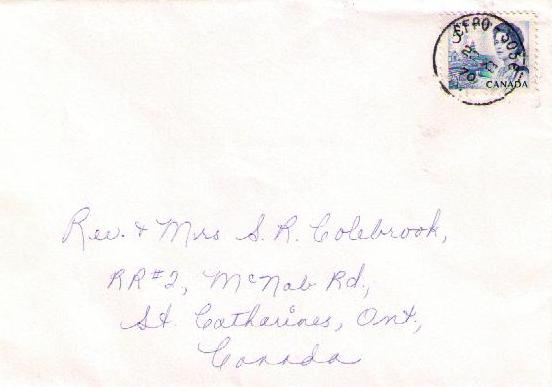 CFPO 5056
5
CANADA
70
Rev. & Mrs S. R. Colebrook,
RR#2, McNab Rd.,
St. Catharines, Ont.,
Canada